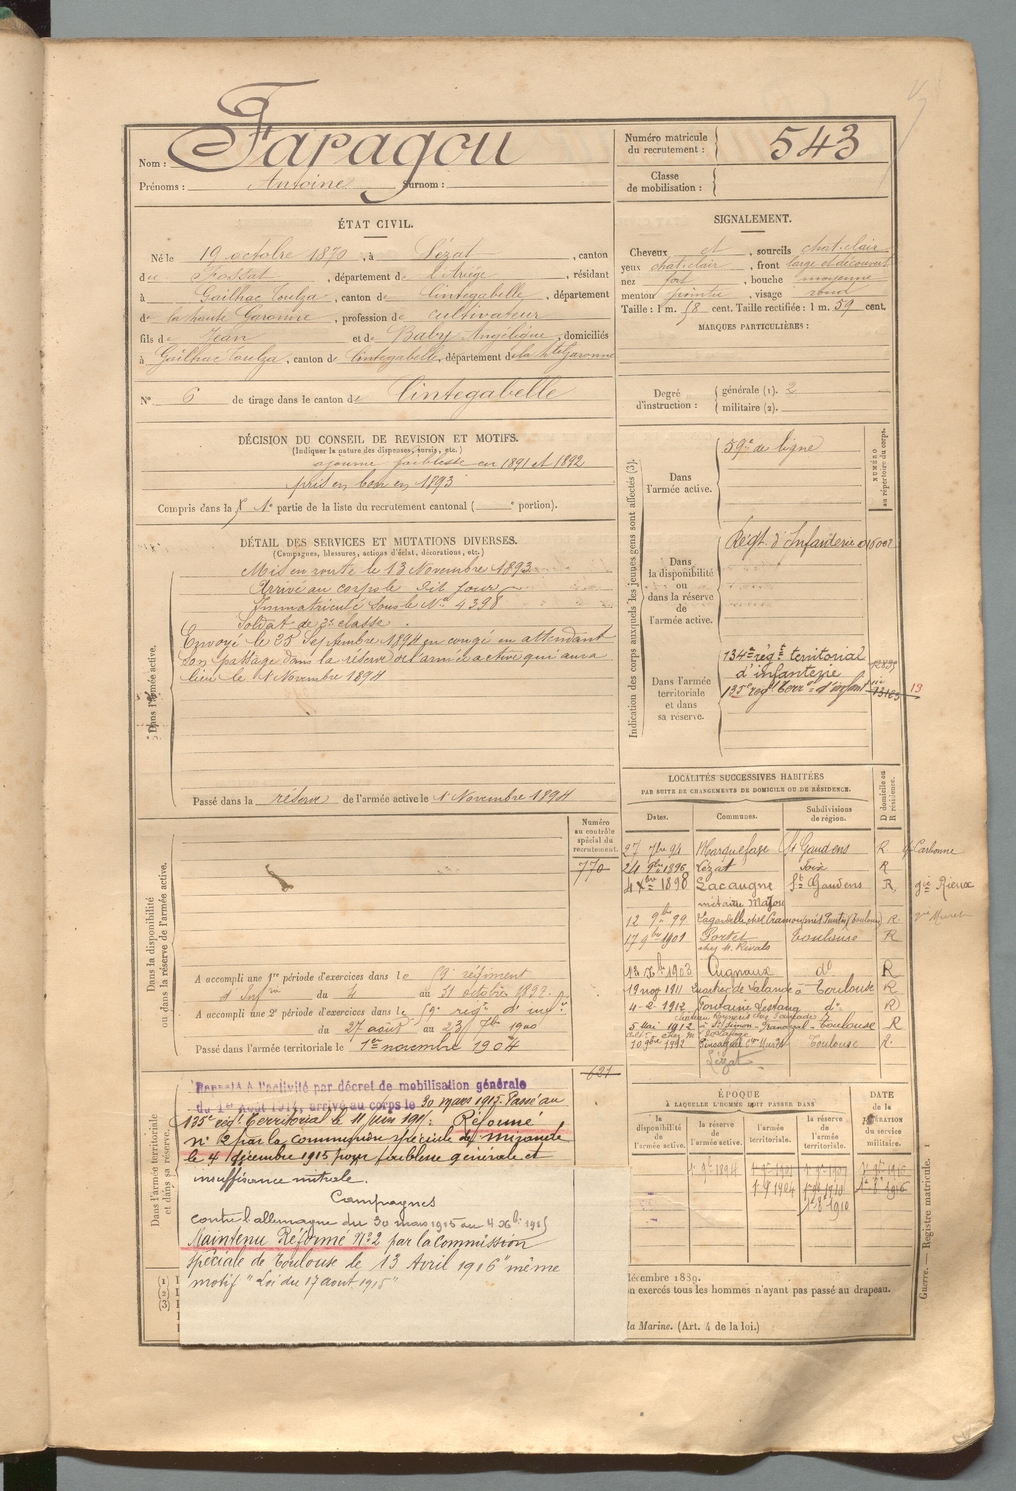 Nom : Faragou
Prénoms : Antoine Surnom :
Numéro matricule du recrutement : 543
Classe de mobilisation :
ÉTAT CIVIL.
Né le 19 octobre 1870, à Lézat, canton
du Fossat, département de l'Ariège, résidant
à Gailhac Toulza, canton de Cintegabelle, département
de la haute Garonne, profession de Cultivateur
fils de Jean et de Baby Angélique, domiciliés
à Gailhac Toulza, canton de Cintegabelle, département de la Hte Garonne
N° 6 de tirage dans le canton de Cintegabelle
SIGNALEMENT.
Cheveux et, sourcils chat. clair
yeux chat. clair, front large et découvert
nez fort, bouche moyenne
menton pointu, visage rond
Taille : 1 m. 58 cent. Taille rectifiée : 1 m. 59 cent.
MARQUES PARTICULIÈRES :
Degré d'instruction : générale (1). 2
militaire (2).
DÉCISION DU CONSEIL DE REVISION ET MOTIFS.
(Indiquer la nature des dispenses, sursis, etc.)
ajourné faiblesse en 1891 et 1892
pris en bon en 1893
Compris dans la 1e partie de la liste du recrutement cantonal ( e portion).
DÉTAIL DES SERVICES ET MUTATIONS DIVERSES.
(Campagnes, blessures, actions d'éclat, décorations, etc.)
Dans l'armée active.
Mis en route le 13 Novembre 1893
Arrivé au corps le dit jour
Immatriculé sous le No 4398
Soldat de 2e classe.
Envoyé le 25 Septembre 1894 en congé en attendant
son passage dans la réserve de l'armée active qui aura
lieu le 1 Novembre 1894
Passé dans la réserve de l'armée active le 1 Novembre 1894
Indication des corps auxquels les jeunes gens sont affectés (3).
NUMÉRO au répertoire du corps.
Dans l'armée active.
59e de ligne
Dans la disponibilité ou dans la réserve de l'armée active.
Régt. d'Infanterie
Dans l'armée territoriale et dans sa réserve.
134e régt territorial
d'infanterie
135e régt Terr. d'Infant
13
LOCALITÉS SUCCESSIVES HABITÉES
PAR SUITE DE CHANGEMENTS DE DOMICILE OU DE RÉSIDENCE.
Dates. Communes. Subdivisions de région. D domicile ou R résidence.
27 7bre 94 Marquefave St Gaudens R Carbonne
24 9bre 1896 Lézat Foix R
4 Xbre 1898 Lacaugne St Gaudens R gie Rieux
métairie
12 9bre 99 R.
17 9bre 1901 Portet Toulouse R
chez M. Rivals
13 Xb 1903 Cugnaux do R
19 nov 1911 quartier de Lalande à Toulouse R
4-2-1912 Fontaine Lestang do R
5 Mai 1912 Toulouse R
Toulouse R.
Lézat
Dans la disponibilité ou dans la réserve de l'armée active.
Numéro au contrôle spécial du recrutement.
770
A accompli une 1re période d'exercices dans le 59 régiment
d'Infrie du 4 au 31 octobre 1899.
A accompli une 2e période d'exercices dans le 59e régt d'infie
du 27 août au 23 7bre 1900
Passé dans l'armée territoriale le 1er novembre 1904
Dans l'armée territoriale et dans sa réserve.
621
Rappelé à l'activité par décret de mobilisation générale
du 1er Août 1914, arrivé au corps le 30 mars 1915. Passé au
135e régt Territorial le 11 juin 1915. Réformé
n° 2 par la commission spéciale de Mirande
le 4 décembre 1915 pour faiblesse générale et
insuffisance mitrale.
Campagnes
contre l'allemagne du 30 mars 1915 au 4 Xbre 1915
Maintenu Réformé N°2 par la Commission
spéciale de Toulouse le 13 Avril 1916 "même
motif" Loi du 17 aout 1915"
ÉPOQUE
À LAQUELLE L'HOMME DOIT PASSER DANS
la disponibilité de l'armée active. la réserve de l'armée active. l'armée territoriale. la réserve de l'armée territoriale.
DATE de la LIBÉRATION du service militaire.
décembre 1889.
on exercés tous les hommes n'ayant pas passé au drapeau.
la Marine. (Art. 4 de la loi.)
Guerre. — Registre matricule. 1